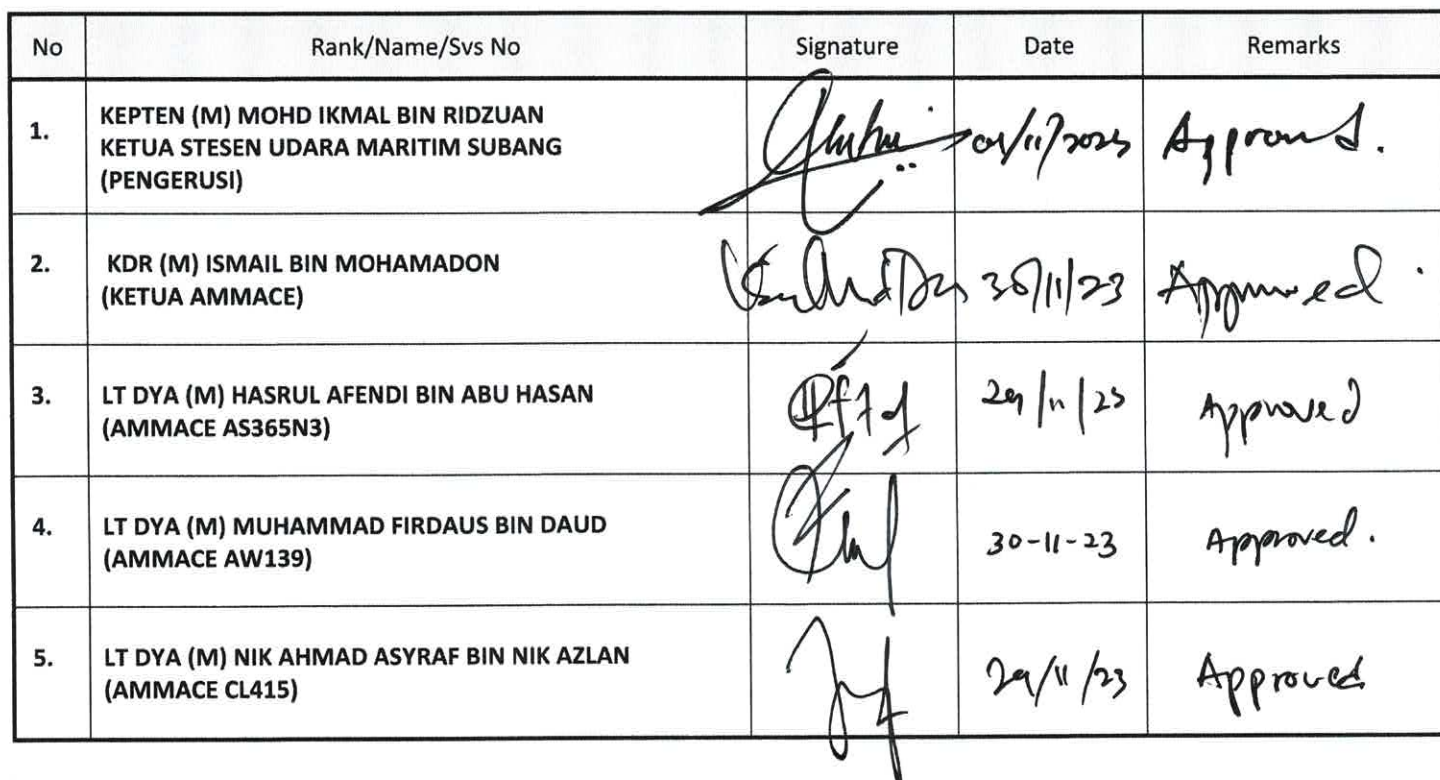 No Rank/Name/Svs No Signature Date Remarks
1. KEPTEN (M) MOHD IKMAL BIN RIDZUAN
KETUA STESEN UDARA MARITIM SUBANG
(PENGERUSI)
Approved.
2. KDR (M) ISMAIL BIN MOHAMADON
(KETUA AMMACE)
30/11/23 Approved
3. LT DYA (M) HASRUL AFENDI BIN ABU HASAN
(AMMACE AS365N3)
29/11/23 Approved
4. LT DYA (M) MUHAMMAD FIRDAUS BIN DAUD
(AMMACE AW139)
30-11-23 Approved.
5. LT DYA (M) NIK AHMAD ASYRAF BIN NIK AZLAN
(AMMACE CL415)
29/11/23 Approved